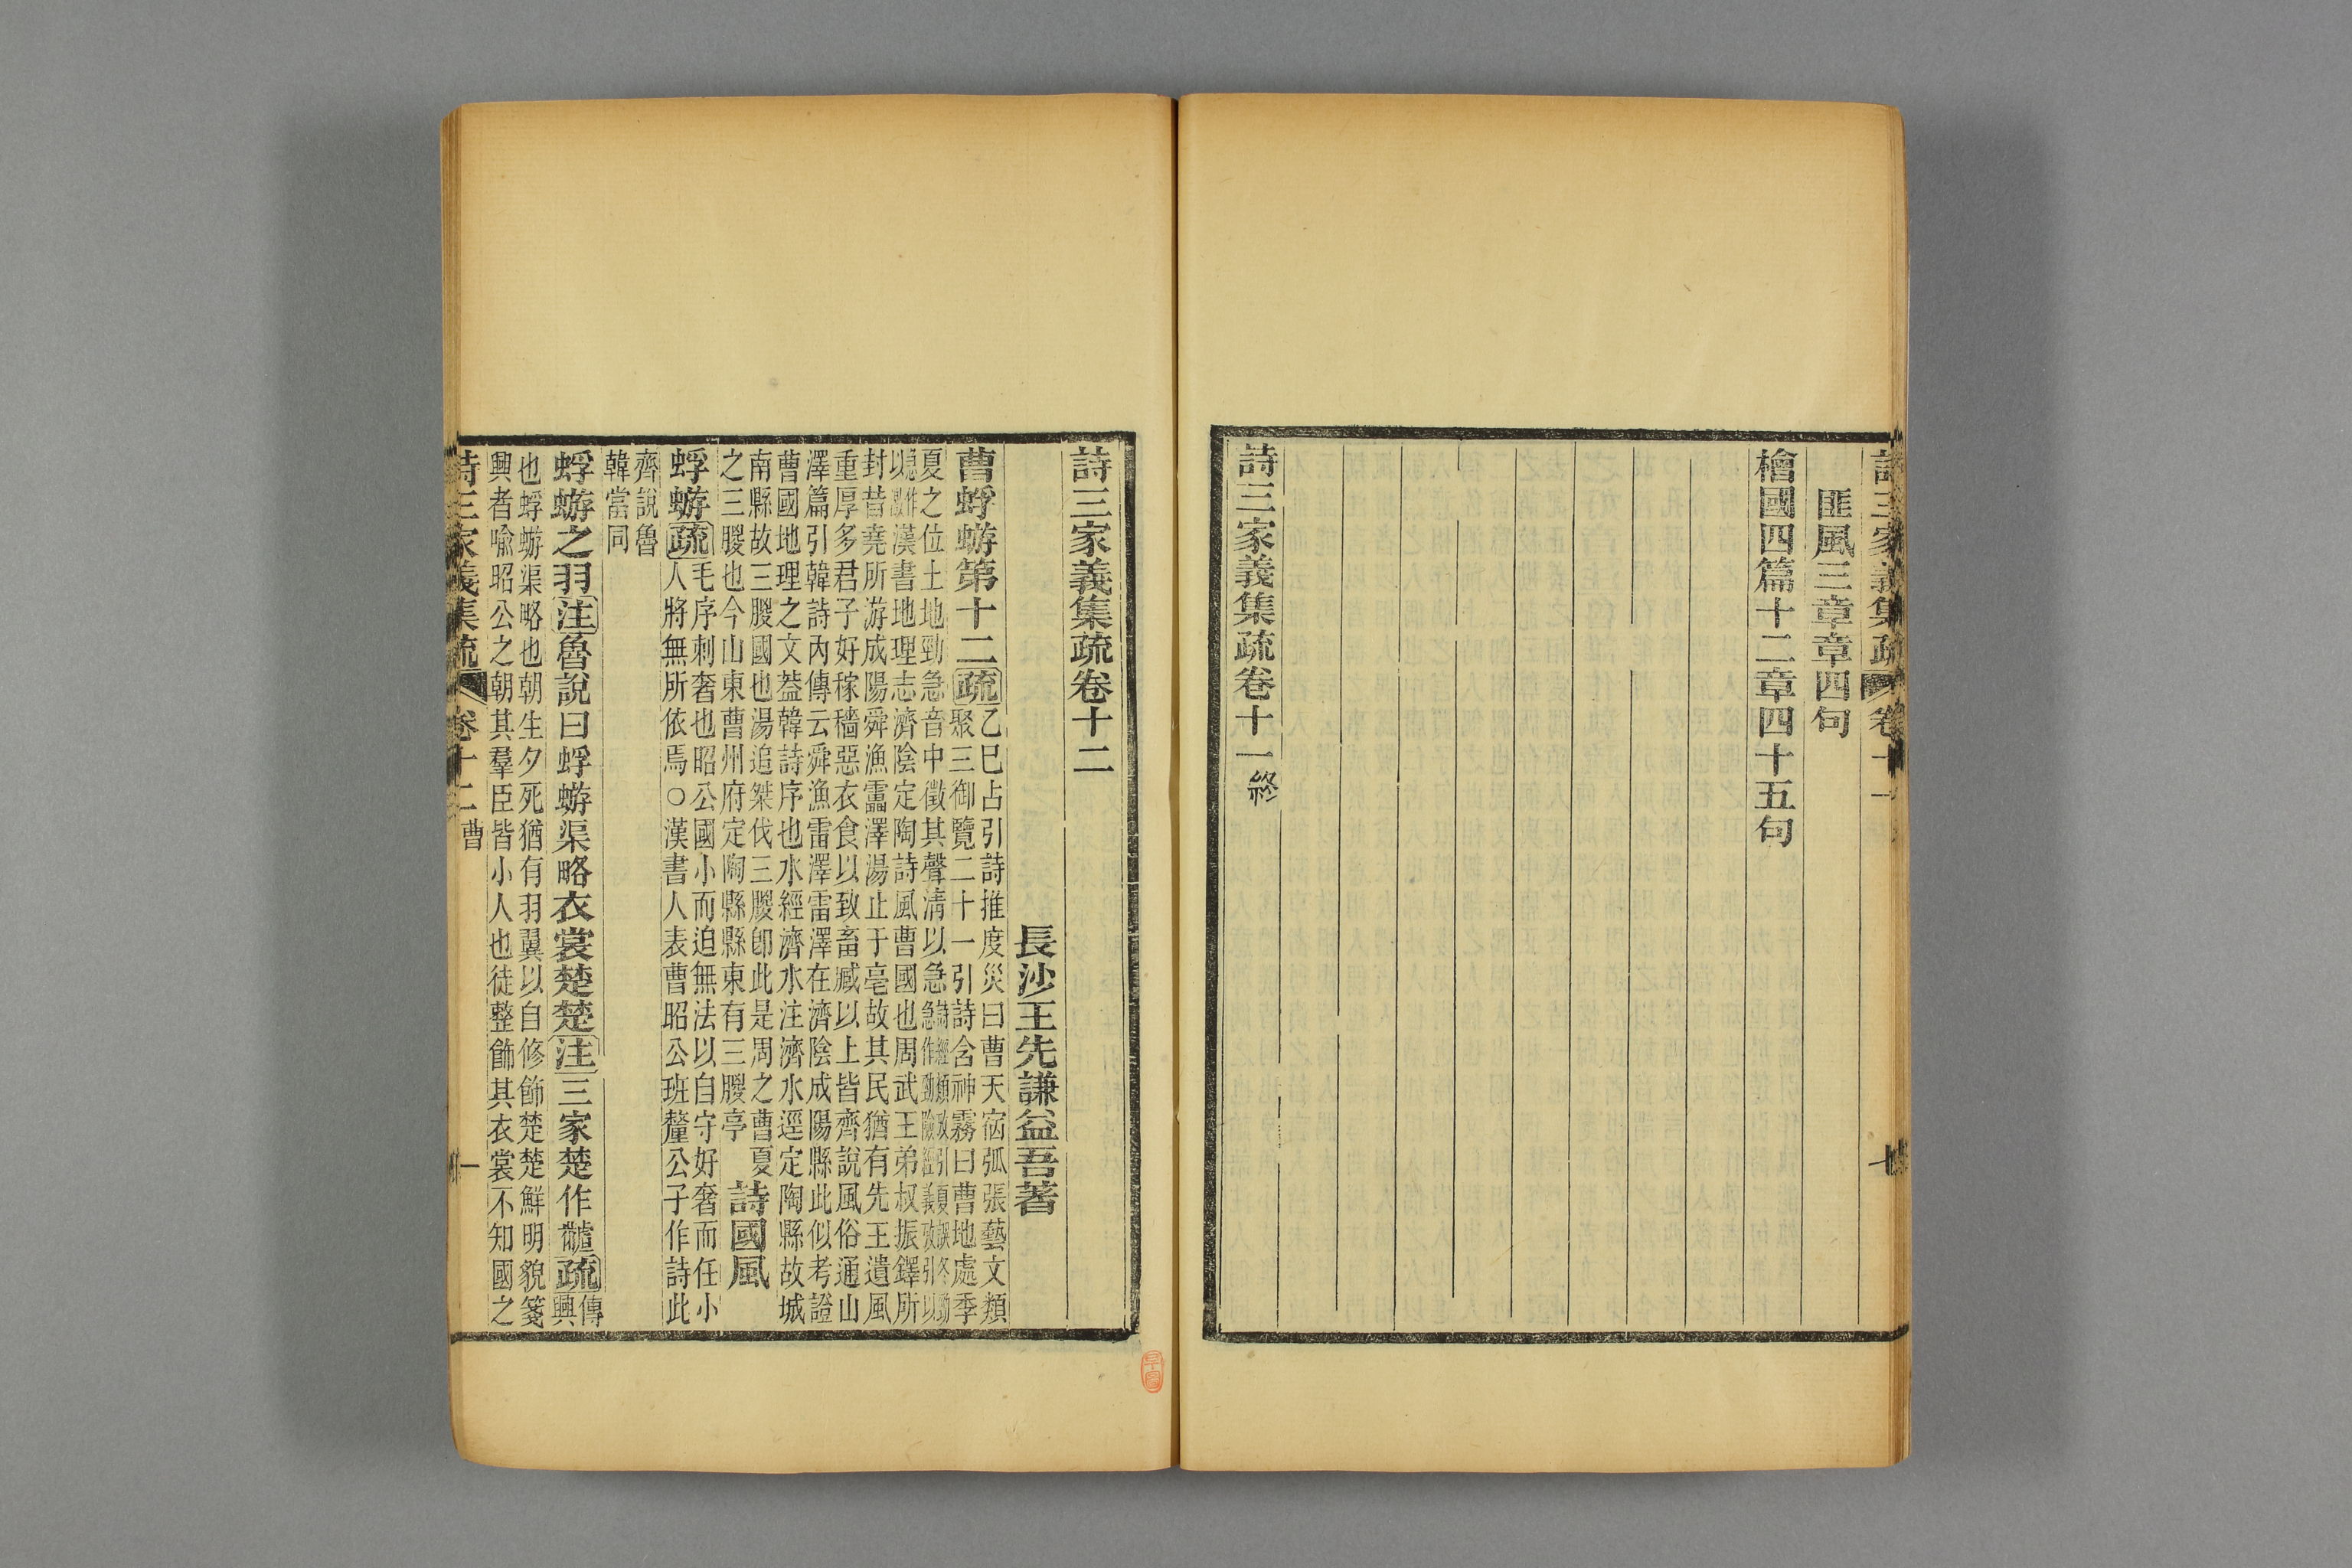 詩三家義集疏 卷十一
匪風三章章四句
檜國四篇十二章四十五句
詩三家義集疏卷十一終
詩三家義集疏卷十二
長沙王先謙益吾著
曹蜉蝣第十二疏
乙巳占引詩推度災曰曹天宿弧張藝文類
聚三御覽二十一引詩含神霧曰曹地處季
夏之位土地勁急音中徵其聲清以急
漢書地理志濟陰定陶詩風曹國也周武王弟叔振鐸所
封昔堯所游成陽舜漁靁澤湯止于亳故其民猶有先王遺風
重厚多君子好稼穡惡衣食以致畜臧以上皆齊說風俗通山
澤篇引韓詩內傳云舜漁雷澤雷澤在濟陰成陽縣此似考證
曹國地理之文葢韓詩序也水經濟水注濟水逕定陶縣故城
南縣故三朡國也湯追桀伐三朡卽此是周之曹夏
之三朡也今山東曹州府定陶縣縣東有三朡亭
詩國風
蜉蝣疏
毛序刺奢也昭公國小而迫無法以自守好奢而任小
人將無所依焉○漢書人表曹昭公班釐公子作詩此
齊說魯
韓當同
蜉蝣之羽注魯說曰蜉蝣渠略衣裳楚楚注三家楚作𪓐疏
傳
興
也蜉蝣渠略也朝生夕死猶有羽翼以自修飾楚楚鮮明貌箋
興者喩昭公之朝其羣臣皆小人也徒整飾其衣裳不知國之
詩三家義集疏 卷十二 曹 一